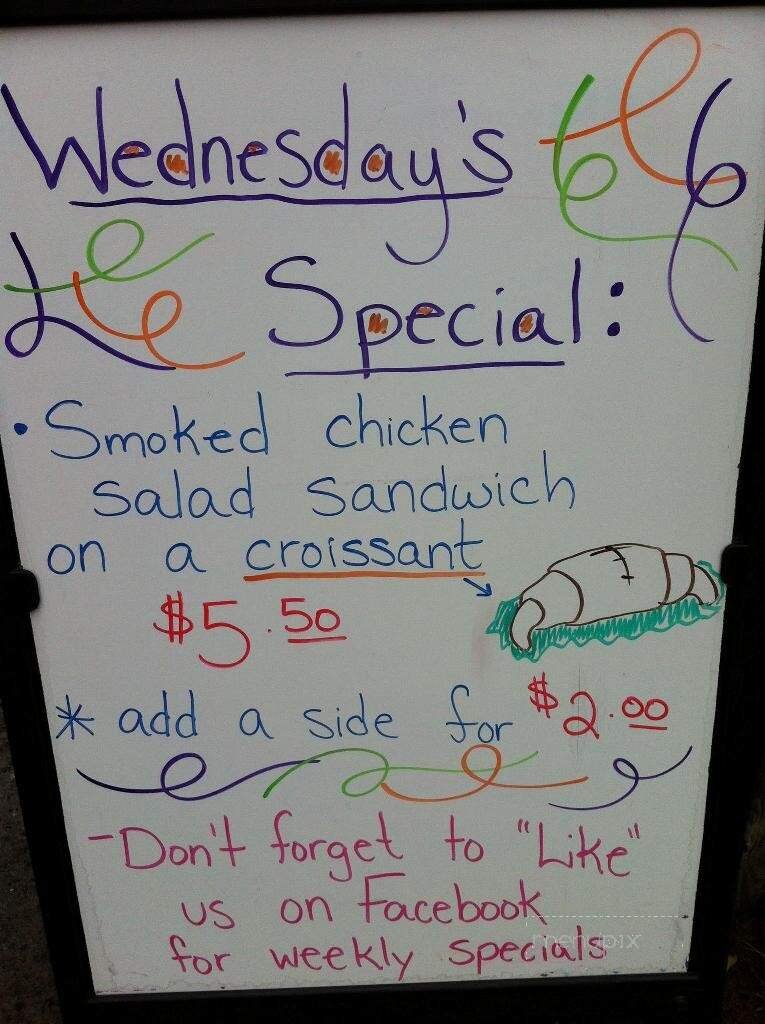 Wednesday's
Special:
• Smoked chicken
salad sandwich
on a croissant
$5.50
* add a side for $2.00
- Don't forget to "Like"
us on Facebook
for weekly specials
menupix